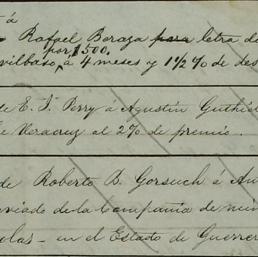 á
Rafael Boraga para letra de
por $1500.
vilbaso, á 4 meses y 1 1/2 % de des
de E. J. Perry á Agustin Guthiel
de Veracruz al 2% de premio.
de Roberto B. Gorsuch á Au
viado de la Compañia de min
elas - en el Estado de Guerrer